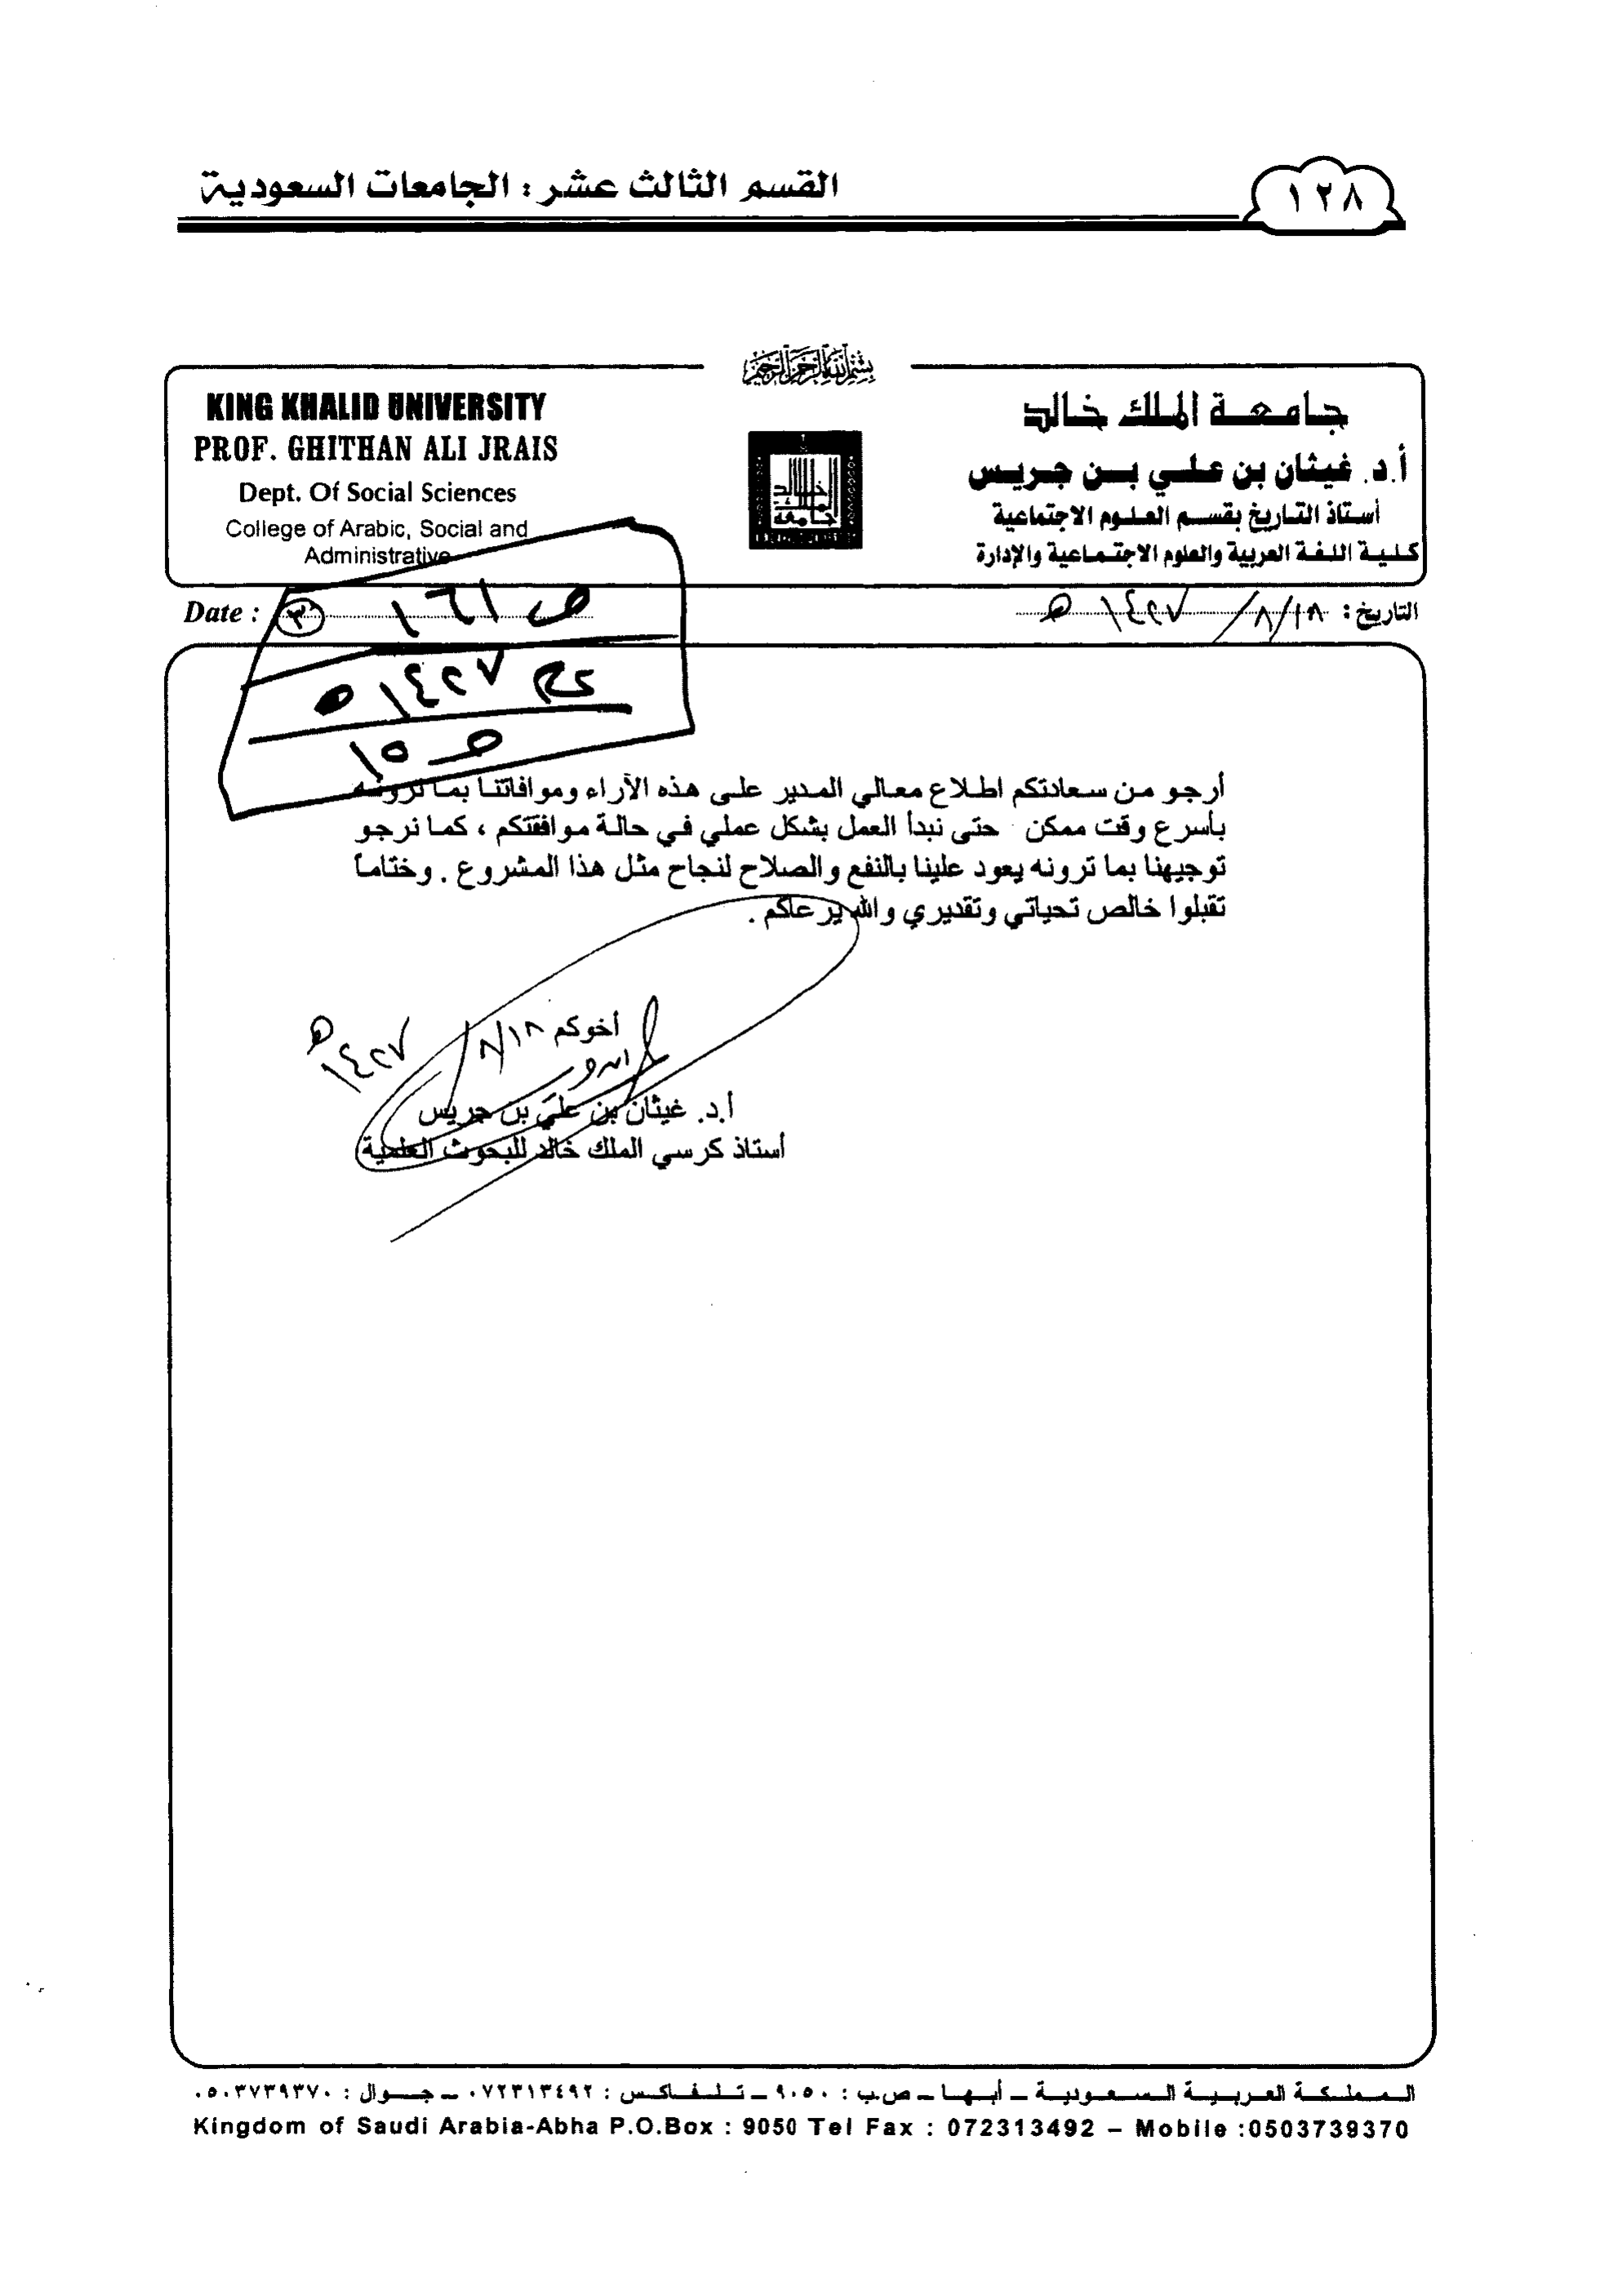 القسم الثالث عشر : الجامعات السعودية
١٢٨
بسم الله الرحمن الرحيم
جامعة الملك خالد
أ.د. غيثان بن علي بن جريس
أستاذ التاريخ بقسم العلوم الاجتماعية
كلية اللغة العربية والعلوم الاجتماعية والإدارة
KING KHALID UNIVERSITY
PROF. GHITHAN ALI JRAIS
Dept. Of Social Sciences
College of Arabic, Social and
Administrative
خالد
الملك
جامعة
التاريخ : ١٨/٨/١٤٢٧هـ
Date :
٣
ص ١٦١
١٤٢٧هـ
ص ١٥
أرجو من سعادتكم اطلاع معالي المدير على هذه الآراء وموافاتنا بما ترونه
بأسرع وقت ممكن حتى نبدأ العمل بشكل عملي في حالة موافقتكم ، كما نرجو
توجيهنا بما ترونه يعود علينا بالنفع والصلاح لنجاح مثل هذا المشروع . وختاماً
تقبلوا خالص تحياتي وتقديري والله يرعاكم .
أخوكم ١٨/٨/١٤٢٧هـ
أ.د. غيثان بن علي بن جريس
أستاذ كرسي الملك خالد للبحوث العلمية
المملكة العربية السعودية – أبها – ص.ب : ٩٠٥٠ – تلفاكس : ٠٧٢٣١٣٤٩٢ – جوال : ٠٥٠٣٧٣٩٣٧٠
Kingdom of Saudi Arabia-Abha P.O.Box : 9050 Tel Fax : 072313492 – Mobile :0503739370